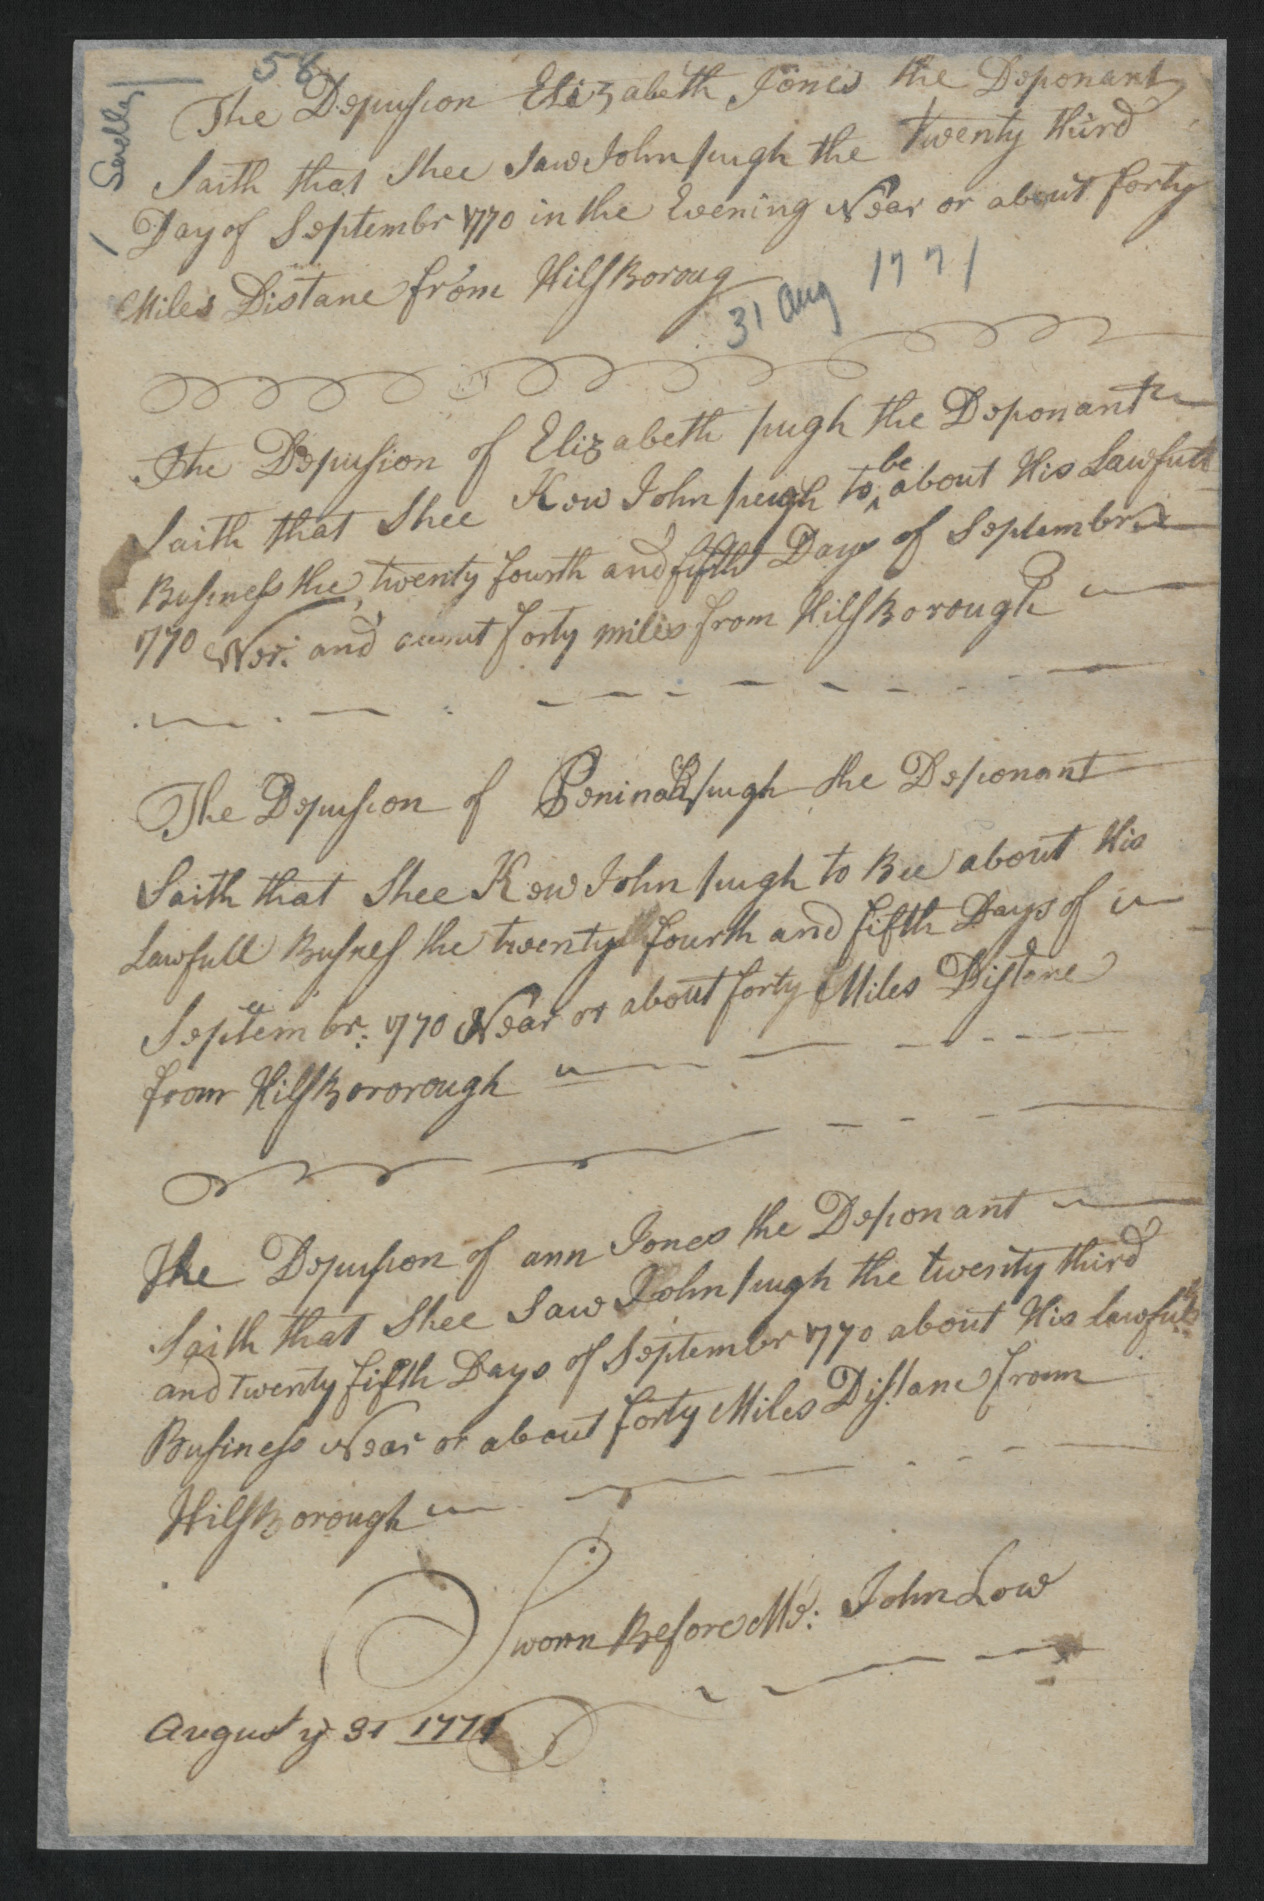 56
The Depusion Elizabeth Jones the Deponant
Saith that Shee Saw John pugh the twenty third
Day of Septembr 1770 in the Evening Near or about forty
Miles Distane from HilsBoroug
31 Aug 1771
The Depusion of Elizabeth pugh the Deponant
Saith that Shee Kew John pugh to be about His Lawfull
Business the twenty fourth and fifth Days of Septembr
1770 Ner: and about forty miles from HilsBorough
The Depusion of Peninah pugh the Deponant
Saith that Shee Kew John pugh to Bee about His
Lawfull Busness the twenty fourth and fifth Days of
Septembr: 1770 Near or about forty Miles Distane
from HilsBororough
The Depusion of ann Jones the Deponant
Saith that Shee Saw John pugh the twenty third
and twenty fifth Days of September 1770 about His lawfull
Business Near or about forty Miles Distane from
HilsBorough
Sworn Before Me: John Low
August ye 31 1771